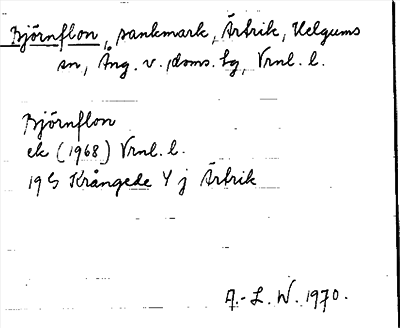 Björnflon, sankmark, Ärtrik, Helgums
sn, Ång. v. doms. lg, Vrnl. l.
Björnflon
ek (1968) Vrnl. l.
19 G Krångede Y j Ärtrik
A.-L. W. 1970.